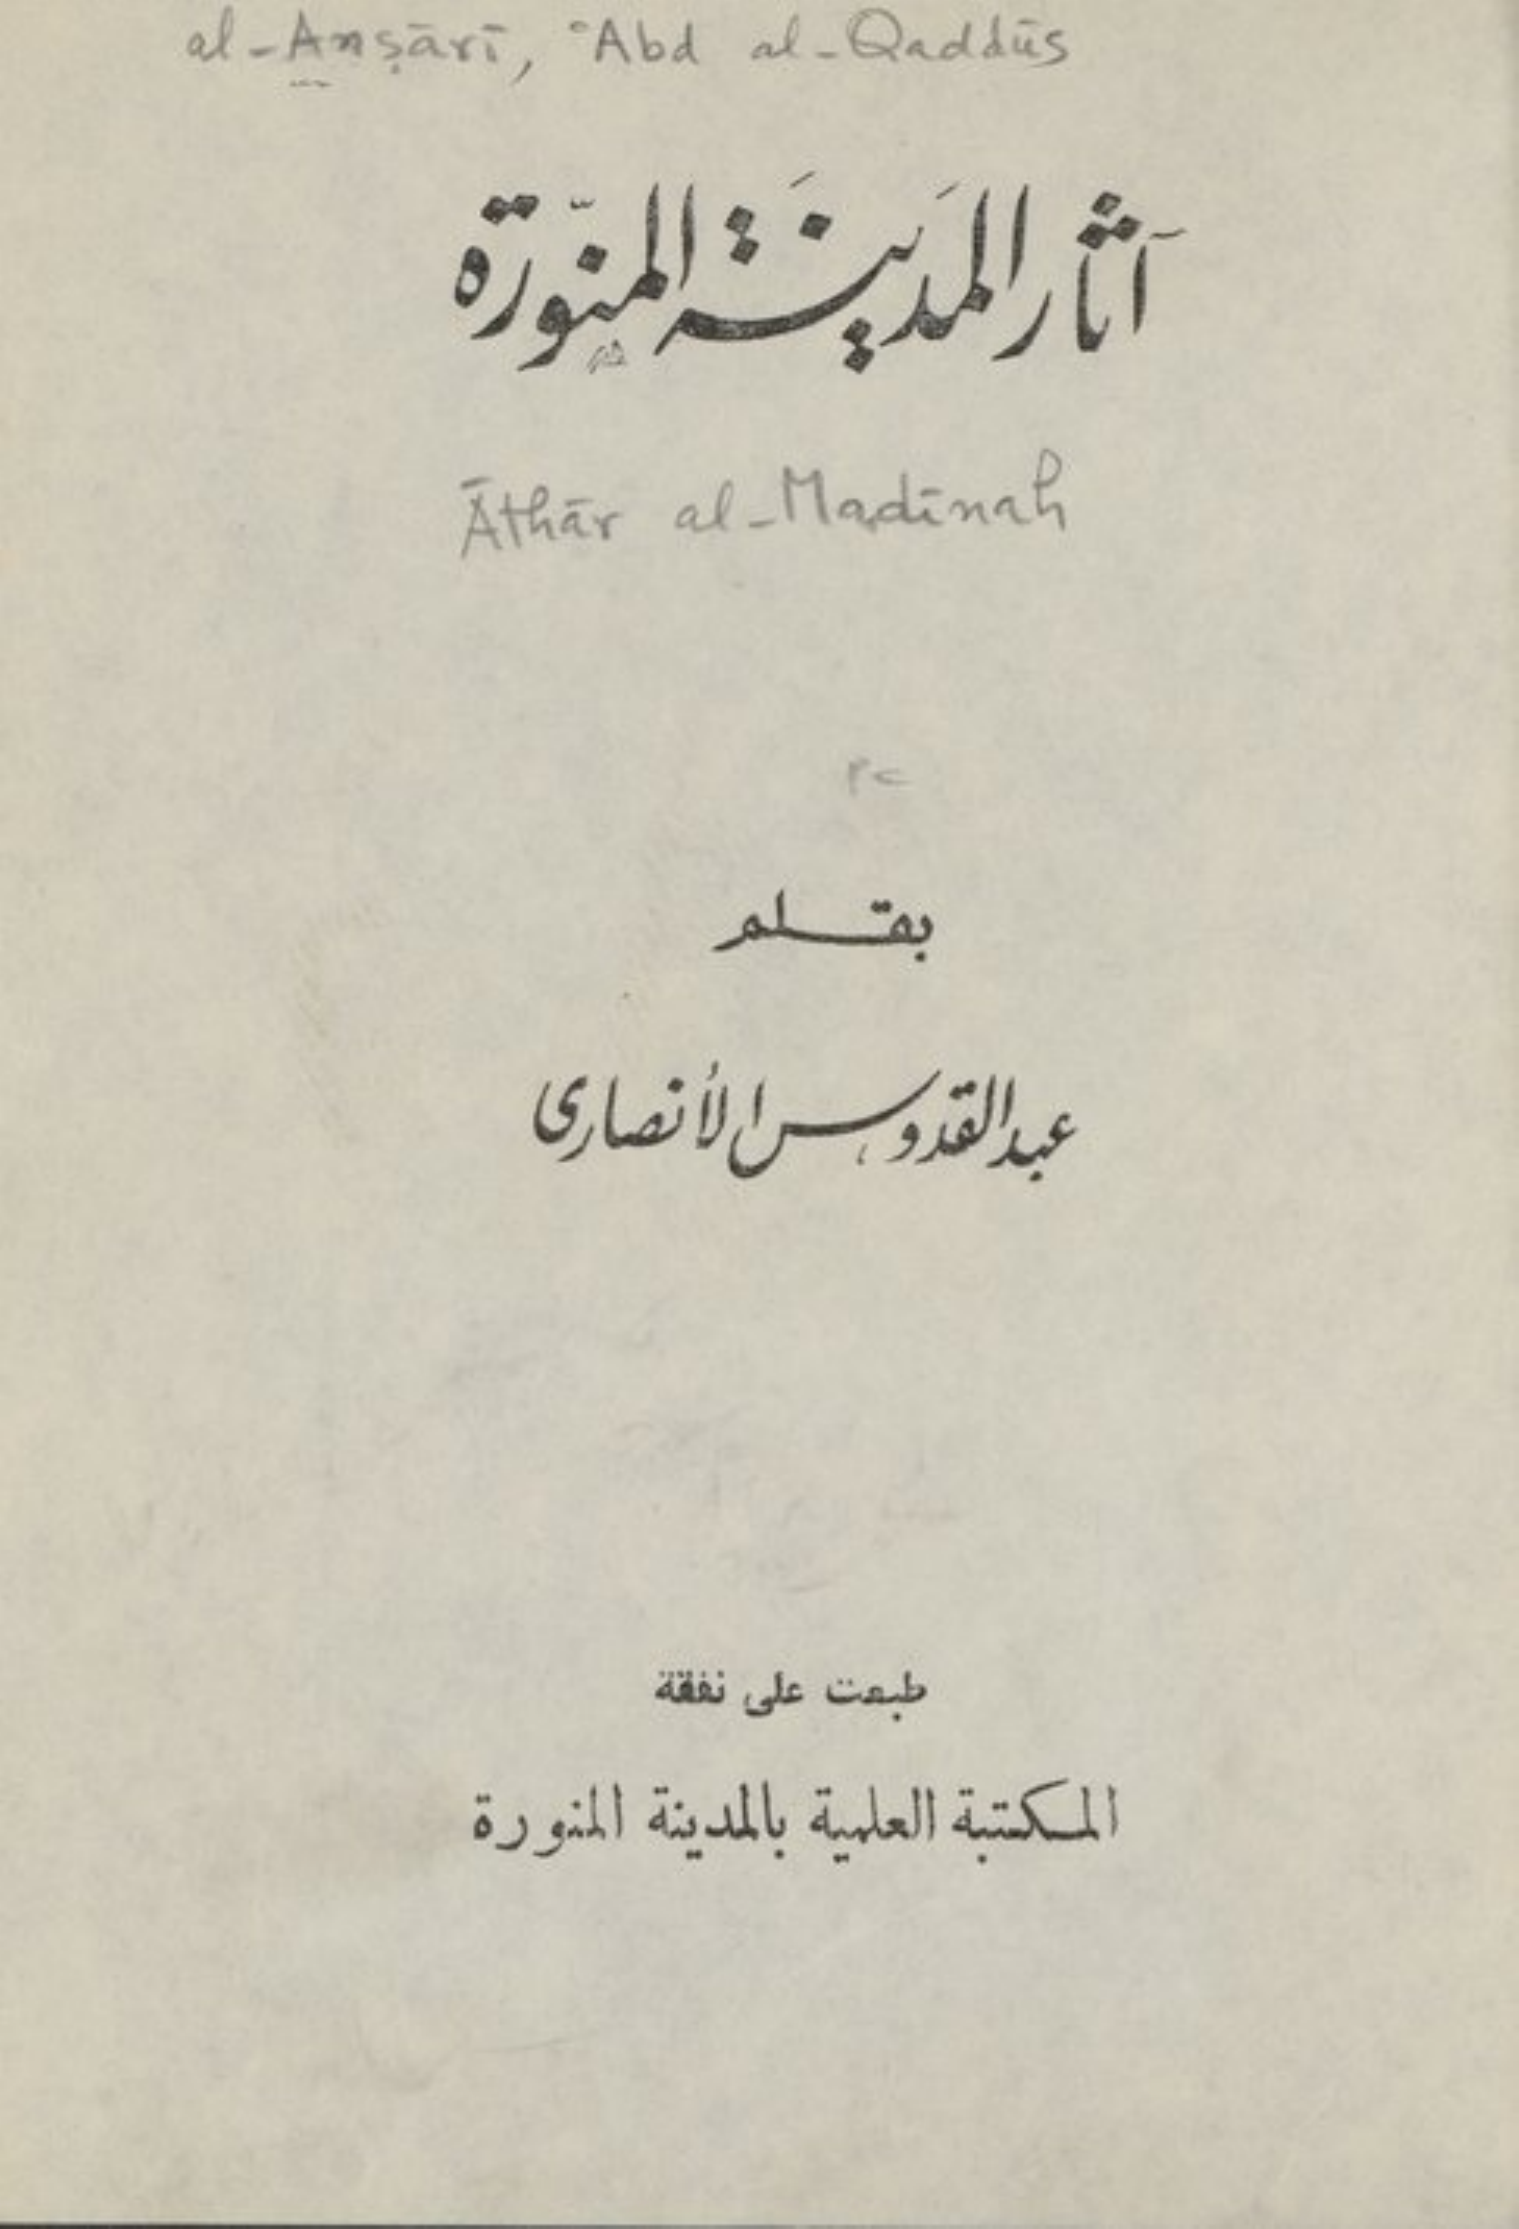 al-Anṣārī, ʿAbd al-Qaddūs
آثار المدَينَة المنوّرة
Āthār al-Madīnah
Pc
بقلم
عبد القدوس الأنصارى
طبعت على نفقة
المكتبة العلمية بالمدينة المنورة